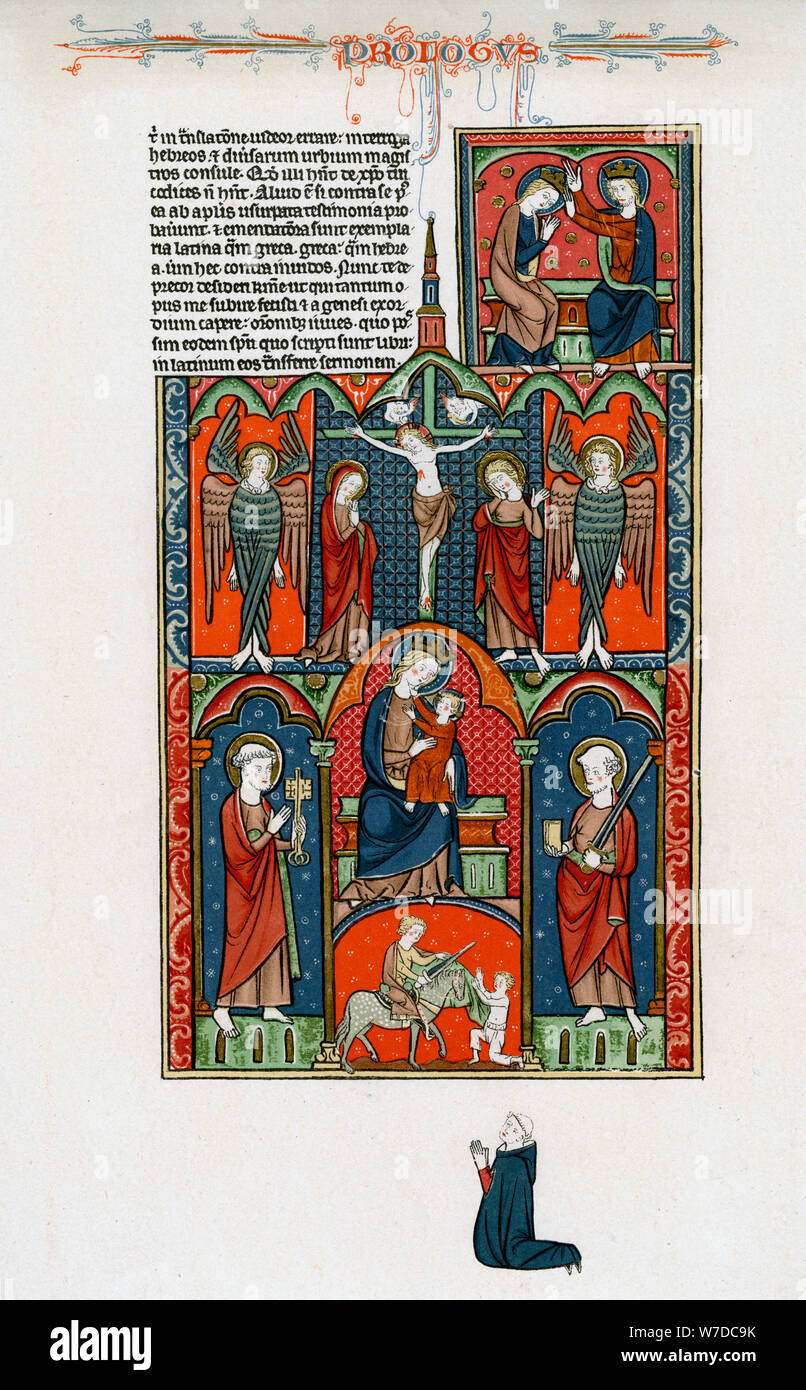 PROLOGVS
t in t̄nslatōne uideor errare: interroga
hebreos & diuisarum urbium magis
tros consule. Qd̄ illi hn̄t de xp̄o tui
codices n̄ hn̄t. Aliud ē si contra se p̾
ea ab aplis usurpata testimonia pro
bauunt. & ementatiora sunt exempla
ria latina qm̄ greca. greca: qm̄ hebre
a. ūm hec contra inuidos. Nunc te de
precor desideri km̄e ut qui tantum o
pus me subire fecisti & a genesi exor
dium capere: orōnibz iuues. quo pos
sim eodem sp̄u quo scripti sunt libri:
in latinum eos t̄nsferre sermonem.
a
alamy
Image ID: W7DC9K
www.alamy.com